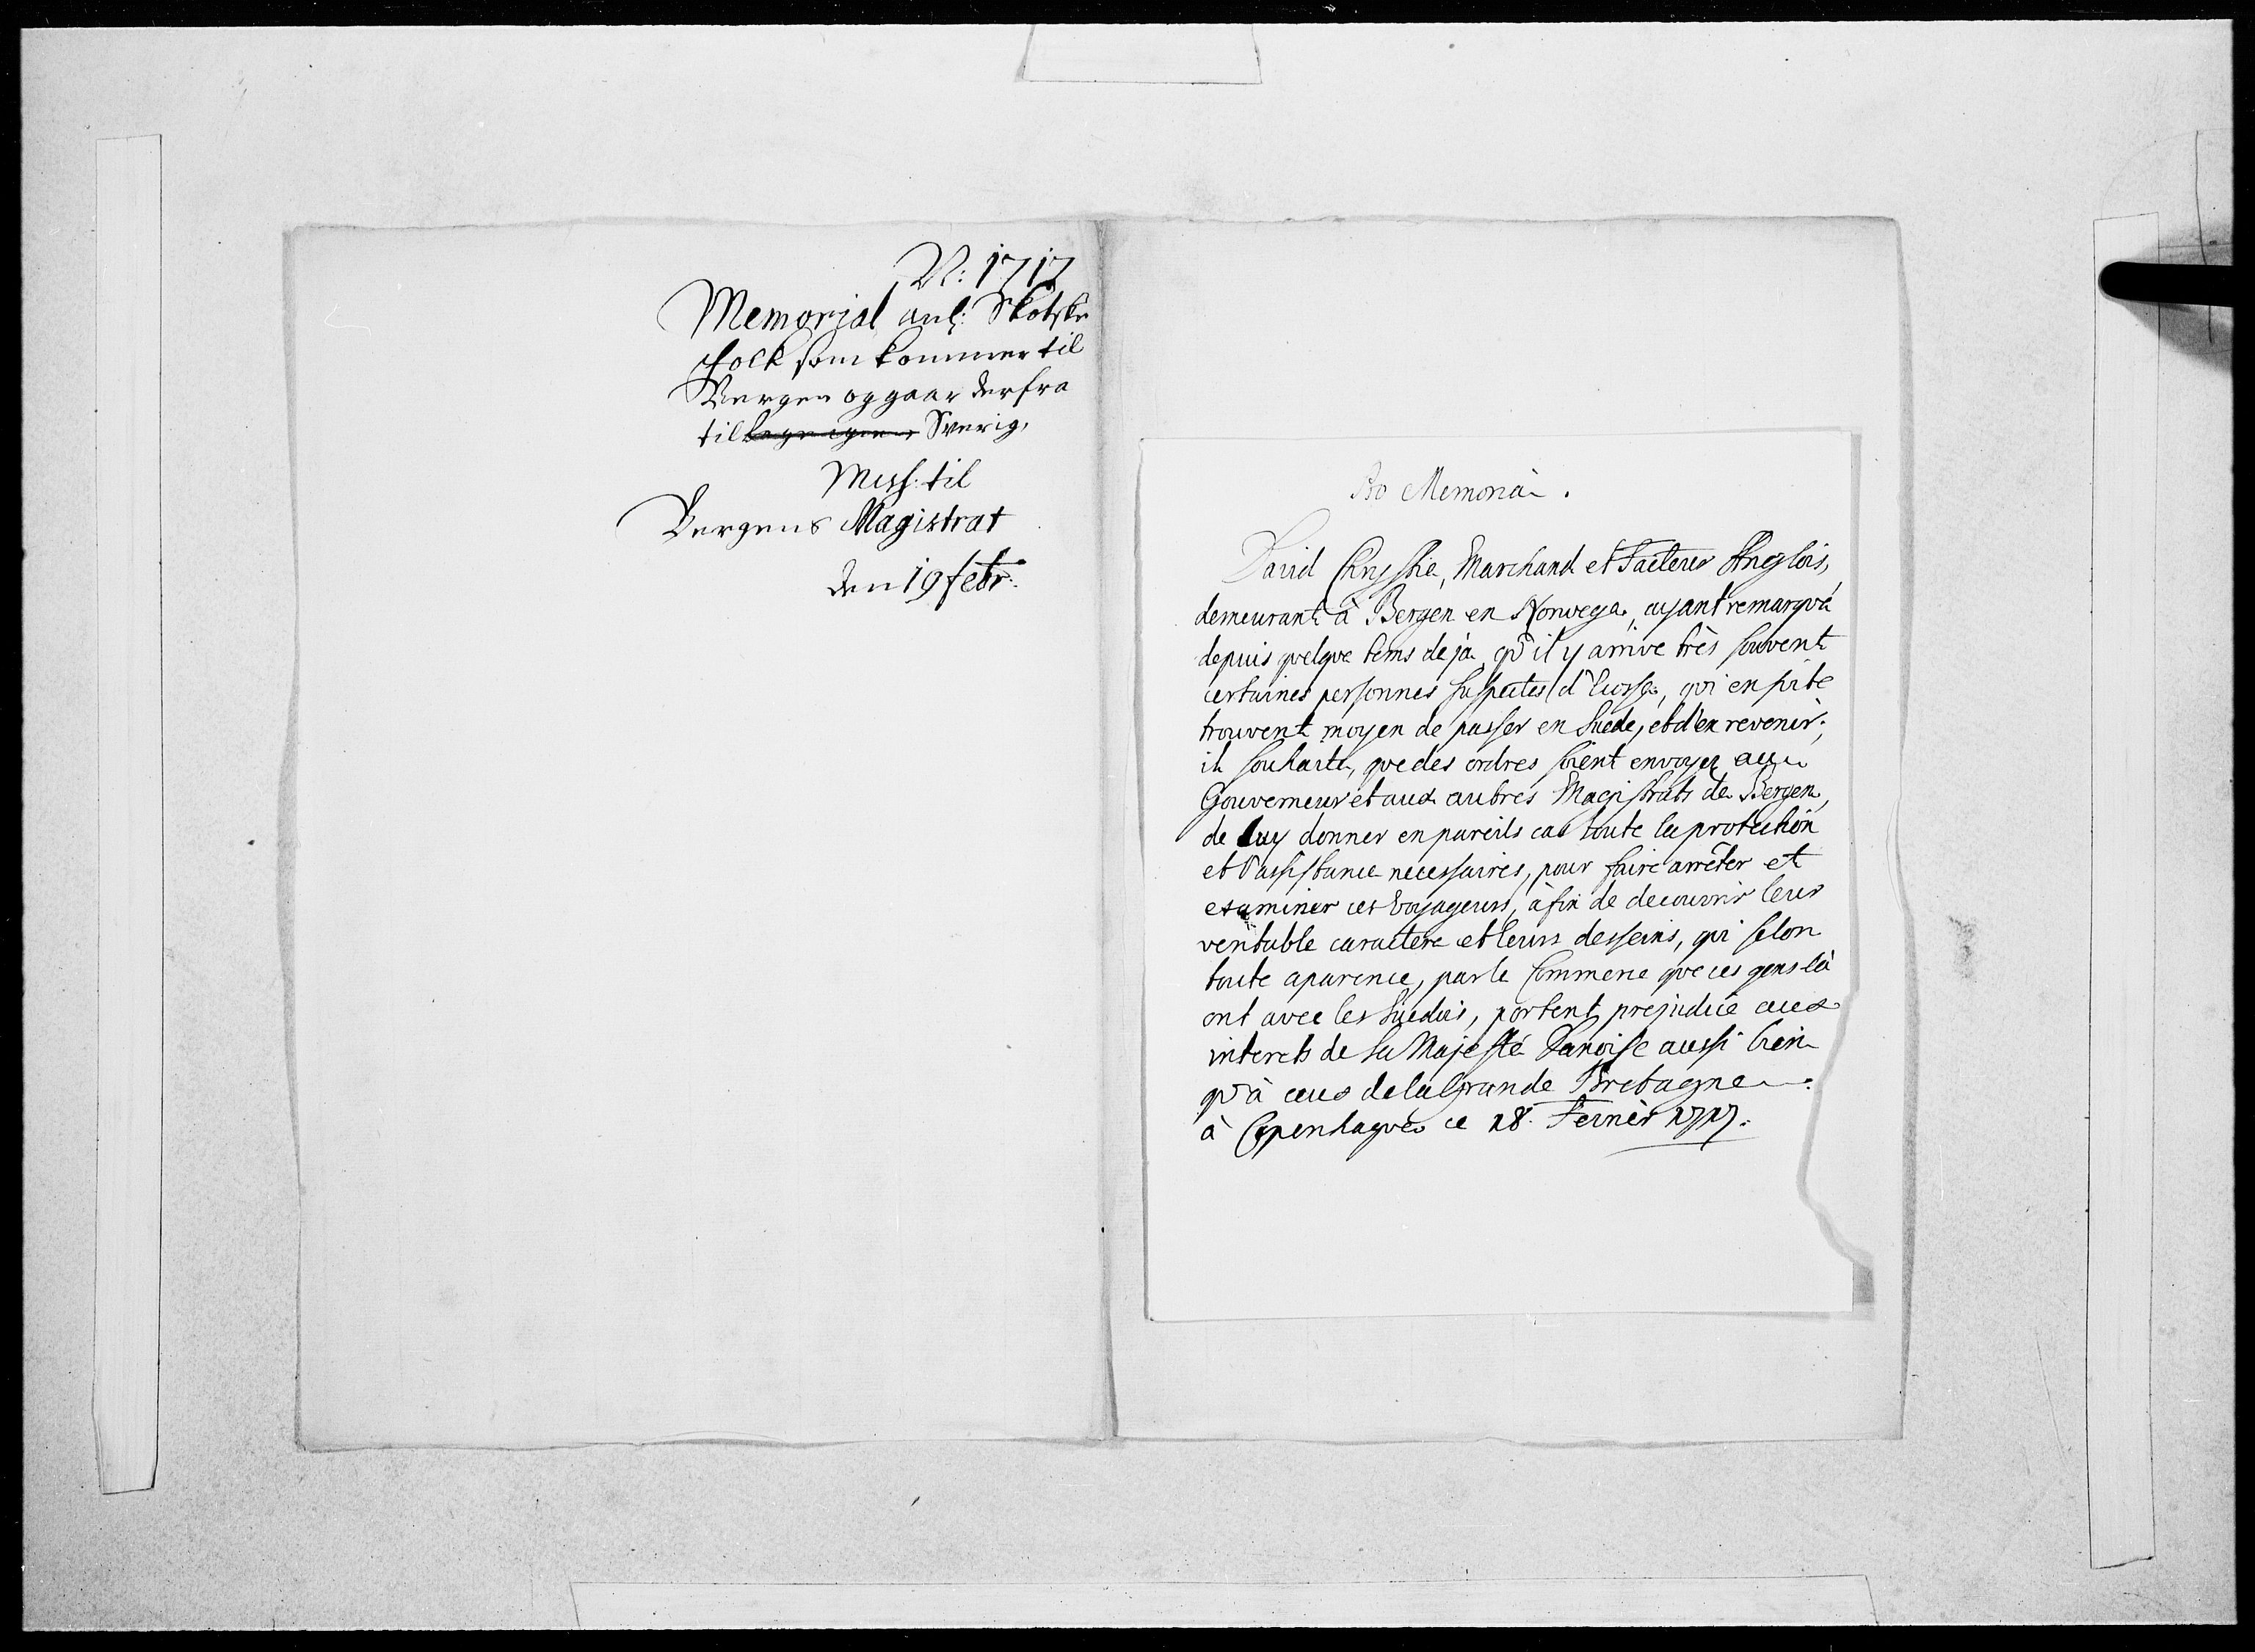 N: 1717
Memorial anl: Skotske
Folck som kommer til
Bergen og gaar derfra
til Sverig,
Miss: til
Bergens Magistrat
den 19 febr:
Pro Memoriâ.
David Chrystie, Marchand et Facteur Anglois,
demeurant à Bergen en Norwege, ayant remarqvé
depuis qvelqve tems deja, qv'il y arrive très souvent
certaines personnes suspectes d'Ecosse, qvi ensuite
trouvent moyen de passer en Suede, et d'en revenir;
il souhaite, qve des ordres soient envoyez au
Gouverneur et aux autres Magistrats de Bergen,
de luy donner en pareils cas toute la protection
et l'assistance necessaires, pour faire arrêter et
examiner ces Voyageurs, à fin de decouvrir leur
veritable caractere et leurs desseins, qvi selon
toute aparence, par le Commerce qve ces gens là
ont avec les Suedois, portent prejudice aux
interets de Sa Majesté Danoise aussi bien
qv'à ceux de la Grande Bretagne.
à Copenhagve ce 18. Fevrier 1717.